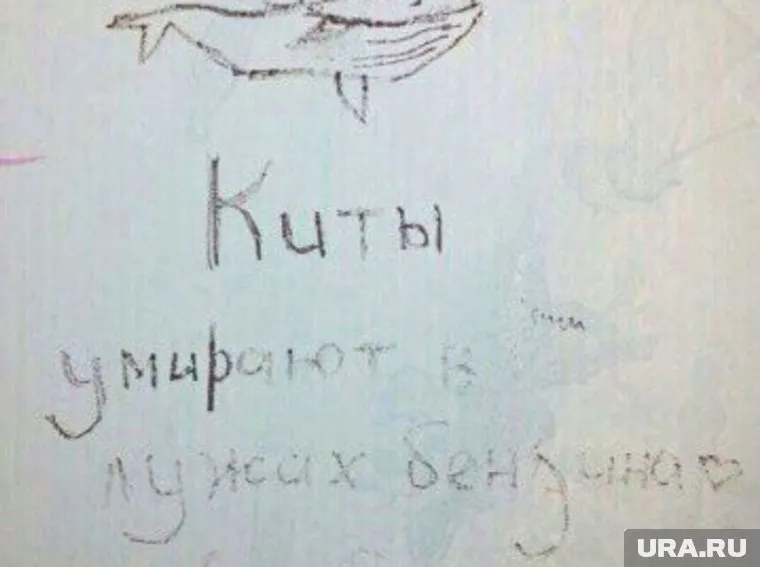 Киты
умирают в
лужах бензина♡
URA.RU